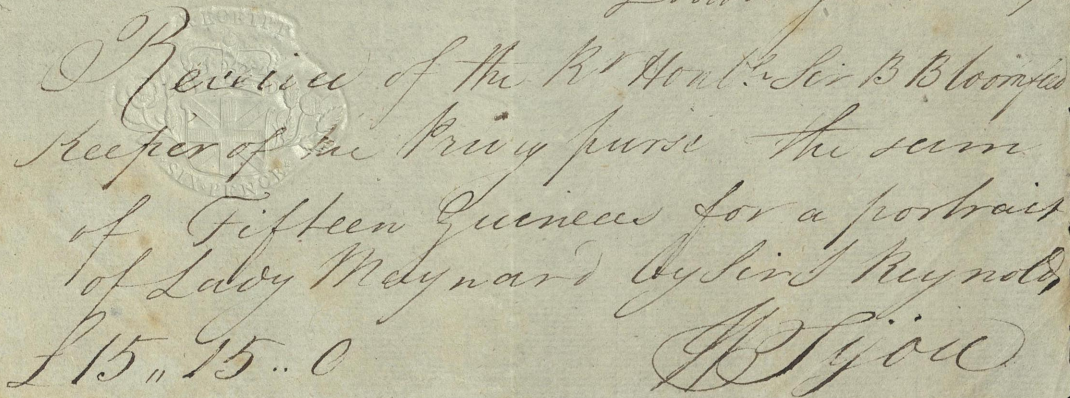 Received of the Rt Honble Sir B Bloomfield
Keeper of the Privy purse the sum
of Fifteen Guineas for a portrait
of Lady Maynard by Sir J Reynolds
£15,,15..0
SIXPENCE